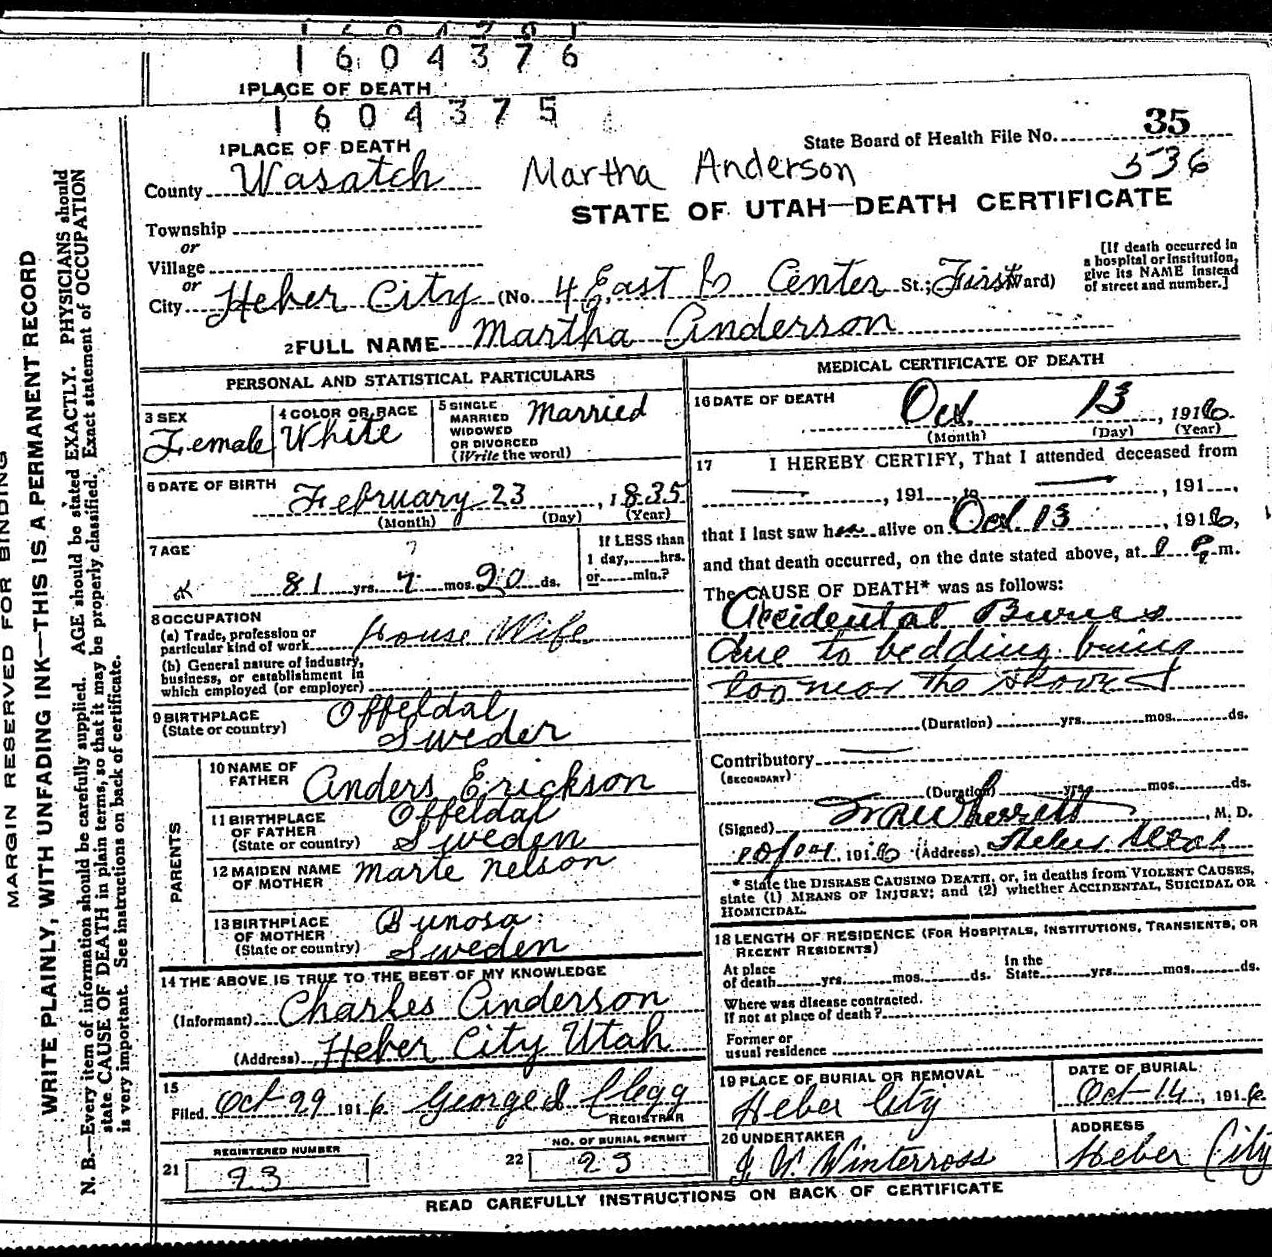 1604376
1PLACE OF DEATH
1604375
1PLACE OF DEATH
State Board of Health File No. 35
536
County Wasatch
Martha Anderson
STATE OF UTAH—DEATH CERTIFICATE
Township
or
Village
or
City Heber City (No. 4 East Center St.; First Ward)
[If death occurred in
a hospital or institution,
give its NAME instead
of street and number.]
2FULL NAME Martha Anderson
PERSONAL AND STATISTICAL PARTICULARS
3 SEX
Female
4 COLOR OR RACE
White
5 SINGLE
MARRIED
WIDOWED
OR DIVORCED
(Write the word)
Married
6 DATE OF BIRTH
February 23, 1835
(Month) (Day) (Year)
7 AGE
81 yrs. 7 mos. 20 ds.
If LESS than
1 day,......hrs.
or......min.?
8 OCCUPATION
(a) Trade, profession or
particular kind of work House Wife
(b) General nature of industry,
business, or establishment in
which employed (or employer)
9 BIRTHPLACE
(State or country)
Offeldal
Sweden
PARENTS
10 NAME OF
FATHER
Anders Erickson
11 BIRTHPLACE
OF FATHER
(State or country)
Offeldal
Sweden
12 MAIDEN NAME
OF MOTHER
Marte Nelson
13 BIRTHPLACE
OF MOTHER
(State or country)
Bunosa
Sweden
14 THE ABOVE IS TRUE TO THE BEST OF MY KNOWLEDGE
(Informant) Charles Anderson
(Address) Heber City Utah
15
Filed Oct 29 1916. George Clegg
REGISTRAR
21
REGISTERED NUMBER
93
22
NO. OF BURIAL PERMIT
MEDICAL CERTIFICATE OF DEATH
16 DATE OF DEATH
Oct. 13, 1916.
(Month) (Day) (Year)
17 I HEREBY CERTIFY, That I attended deceased from
—, 191 , to —, 191 ,
that I last saw her alive on Oct 13, 1916,
and that death occurred, on the date stated above, at P.m.
The CAUSE OF DEATH* was as follows:
Accidental Burns
due to bedding being
too near the stove
(Duration) yrs. mos. ds.
Contributory —
(SECONDARY)
(Duration) yrs. mos. ds.
(Signed) Wherritt, M. D.
1916 (Address) Heber Utah
* State the DISEASE CAUSING DEATH, or, in deaths from VIOLENT CAUSES,
state (1) MEANS OF INJURY; and (2) whether ACCIDENTAL, SUICIDAL OR
HOMICIDAL.
18 LENGTH OF RESIDENCE (FOR HOSPITALS, INSTITUTIONS, TRANSIENTS, OR
RECENT RESIDENTS)
At place
of death yrs. mos. ds.
In the
State yrs. mos. ds.
Where was disease contracted.
If not at place of death?
Former or
usual residence
19 PLACE OF BURIAL OR REMOVAL
Heber City
DATE OF BURIAL
Oct 14, 1916.
20 UNDERTAKER
Winterross
ADDRESS
Heber City
READ CAREFULLY INSTRUCTIONS ON BACK OF CERTIFICATE
MARGIN RESERVED FOR BINDING
WRITE PLAINLY, WITH UNFADING INK—THIS IS A PERMANENT RECORD
N. B.—Every item of information should be carefully supplied. AGE should be stated EXACTLY. PHYSICIANS should
state CAUSE OF DEATH in plain terms, so that it may be properly classified. Exact statement of OCCUPATION
is very important. See instructions on back of certificate.